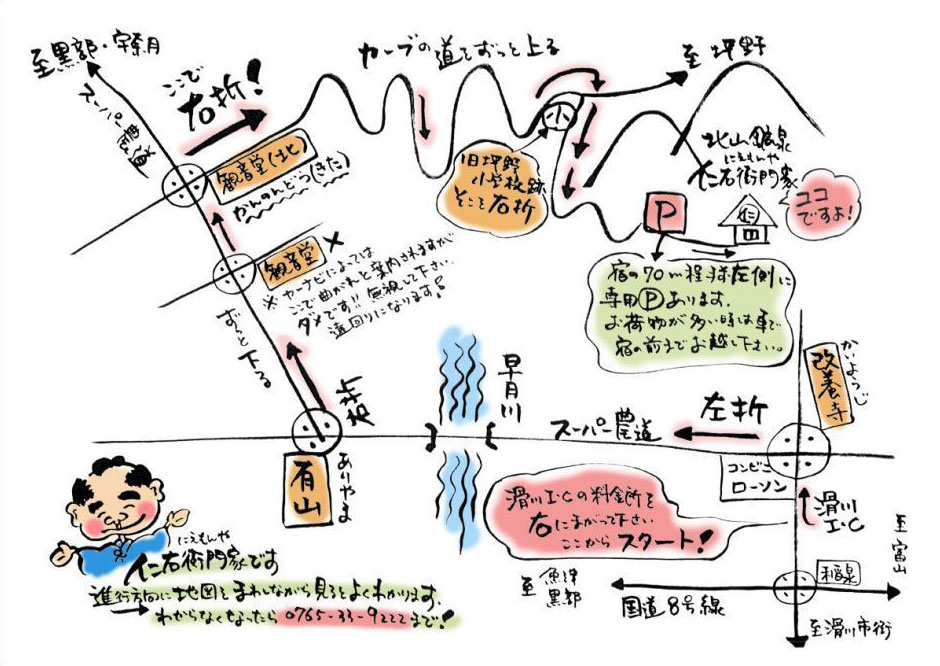 至黒部・宇奈月
スーパー農道
ここで
右折!
カーブの道をずっと上る
至坪野
観音堂(北)
かんのんどう(きた)
小
旧坪野
小学校跡
そこを右折
北山鉱泉
にえもんや
仁右衛門家
ココ
ですよ!
P
仁
観音堂
×
※カーナビによっては
ここで曲がれと案内されますが
ダメです!!無視して下さい。
遠回りになります!
宿の70m程手前左側に
専用Pあります。
お荷物が多い時は車で
宿の前までお越し下さい。
ずっと下る
右折
早月川
スーパー農道
左折
かいようじ
改養寺
有山
ありやま
コンビニ
ローソン
滑川I・Cの料金所を
右にまがって下さい
ここからスタート!
滑川
I・C
至富山
至魚津
黒部
国道8号線
至滑川市街
にえもんや
仁右衛門家です
進行方向に地図をまわしながら見るとよくわかります。
わからなくなったら0765-33-9222まで!